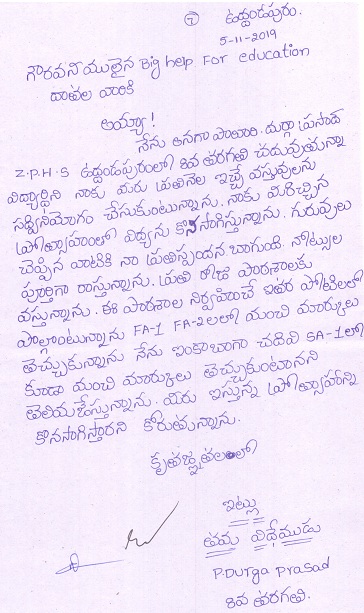 7
ఉద్దండపురం.
5-11-2019
గౌరవనీయులైన Big help For education
దాతల వారికి
అయ్యా!
నేను అనగా పోలారి. దుర్గా ప్రసాద్
Z.P.H.S ఉద్దండపురంలో 8వ తరగతి చదువుతున్నా
విద్యార్థిని నాకు మీరు ప్రతినెల ఇచ్చే వస్తువులను
సద్వినియోగం చేసుకుంటున్నాను. నాకు మీరిచ్చిన
ప్రోత్సాహంతో విద్యను కొనసాగిస్తున్నాను. గురువులు
చెప్పిన వాటికి నా ప్రతిస్పందన బాగుంది. నోట్సుల
పూర్తిగా రాస్తున్నాను. ప్రతి రోజు పాఠశాలకు
వస్తున్నాను. ఈ పాఠశాల నిర్వహించే ఇతర పోటీలలో
పాల్గొంటున్నాను FA-1 FA-2లలో మంచి మార్కులు
తెచ్చుకున్నాను నేను ఇంకాబాగా చదివి SA-1లో
కూడా మంచి మార్కులు తెచ్చుకుంటానని
తెలియజేస్తున్నాను. మీరు ఇస్తున్న ప్రోత్సాహాన్ని
కొనసాగిస్తారని కోరుతున్నాను.
కృతజ్ఞతలతో
ఇట్లు
తమ విధేముడు
P.Durga Prasad
8వ తరగతి.